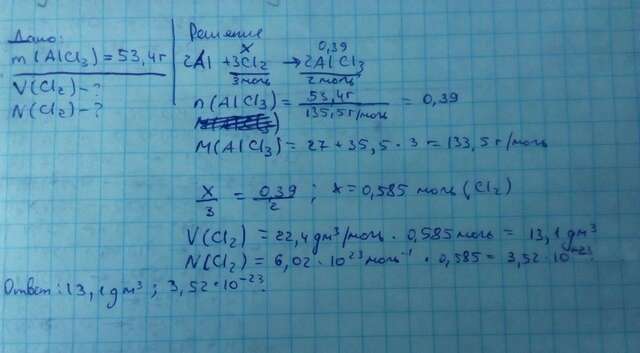 Дано:
m(AlCl₃) = 53,4г
V(Cl₂) - ?
N(Cl₂) - ?
Решение
x 0,39
2Al + 3Cl₂ → 2AlCl₃
3моль 2моль
n(AlCl₃) = 53,4г / 135,5г/моль = 0,39
M(AlCl₃) = 27 + 35,5 · 3 = 133,5 г/моль
x/3 = 0,39/2 ; x = 0,585 моль (Cl₂)
V(Cl₂) = 22,4 дм³/моль · 0,585 моль = 13,1 дм³
N(Cl₂) = 6,02 · 10²³ моль⁻¹ · 0,585 = 3,52 · 10⁻²³
Ответ: 13,1 дм³ ; 3,52 · 10⁻²³